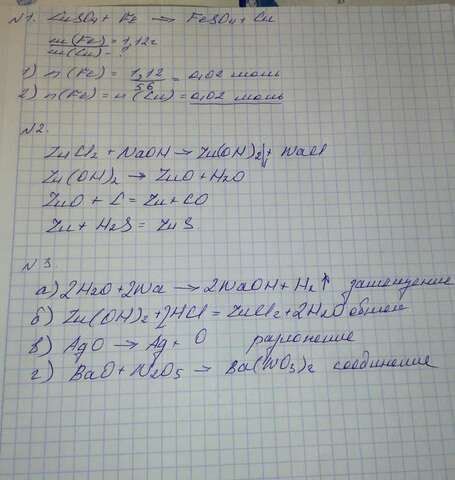 N1. CuSO4 + Fe → FeSO4 + Cu
m(Fe) = 1,12г
m(Cu) - ?
1) n(Fe) = 1,12/56 = 0,02 моль
2) n(Fe) = n(Cu) = 0,02 моль
N2.
ZnCl2 + NaOH → Zn(OH)2↓ + NaCl
Zn(OH)2 → ZnO + H2O
ZnO + C = Zn + CO
Zn + H2S = ZnS
N3.
а) 2H2O + 2Na → 2NaOH + H2↑ замещение
б) Zn(OH)2 + 2HCl = ZnCl2 + 2H2O обмен
в) AgO → Ag + O разложение
г) BaO + N2O5 → Ba(NO3)2 соединение